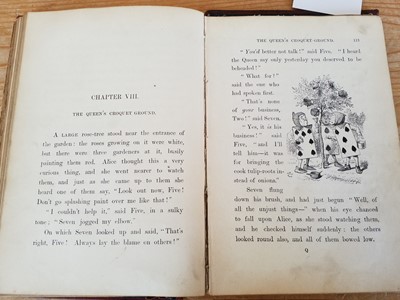 CHAPTER VIII.
THE QUEEN'S CROQUET-GROUND.
A LARGE rose-tree stood near the entrance
of the garden: the roses growing on it were white,
but there were three gardeners at it, busily
painting them red. Alice thought this a very
curious thing, and she went nearer to watch
them, and just as she came up to them she
heard one of them say, "Look out now, Five!
Don't go splashing paint over me like that!"
"I couldn't help it," said Five, in a sulky
tone; "Seven jogged my elbow."
On which Seven looked up and said, "That's
right, Five! Always lay the blame on others!"
THE QUEEN'S CROQUET-GROUND.
"You'd better not talk!" said Five. "I heard
the Queen say only yesterday you deserved to be
beheaded!"
"What for?"
said the one who
had spoken first.
"That's none
of your business,
Two!" said Seven.
"Yes, it is his
business!" said
Five, "and I'll
tell him—it was
for bringing the
cook tulip-roots in-
stead of onions."
Seven flung
down his brush, and had just begun "Well, of
all the unjust things—" when his eye chanced
to fall upon Alice, as she stood watching them,
and he checked himself suddenly; the others
looked round also, and all of them bowed low.
9